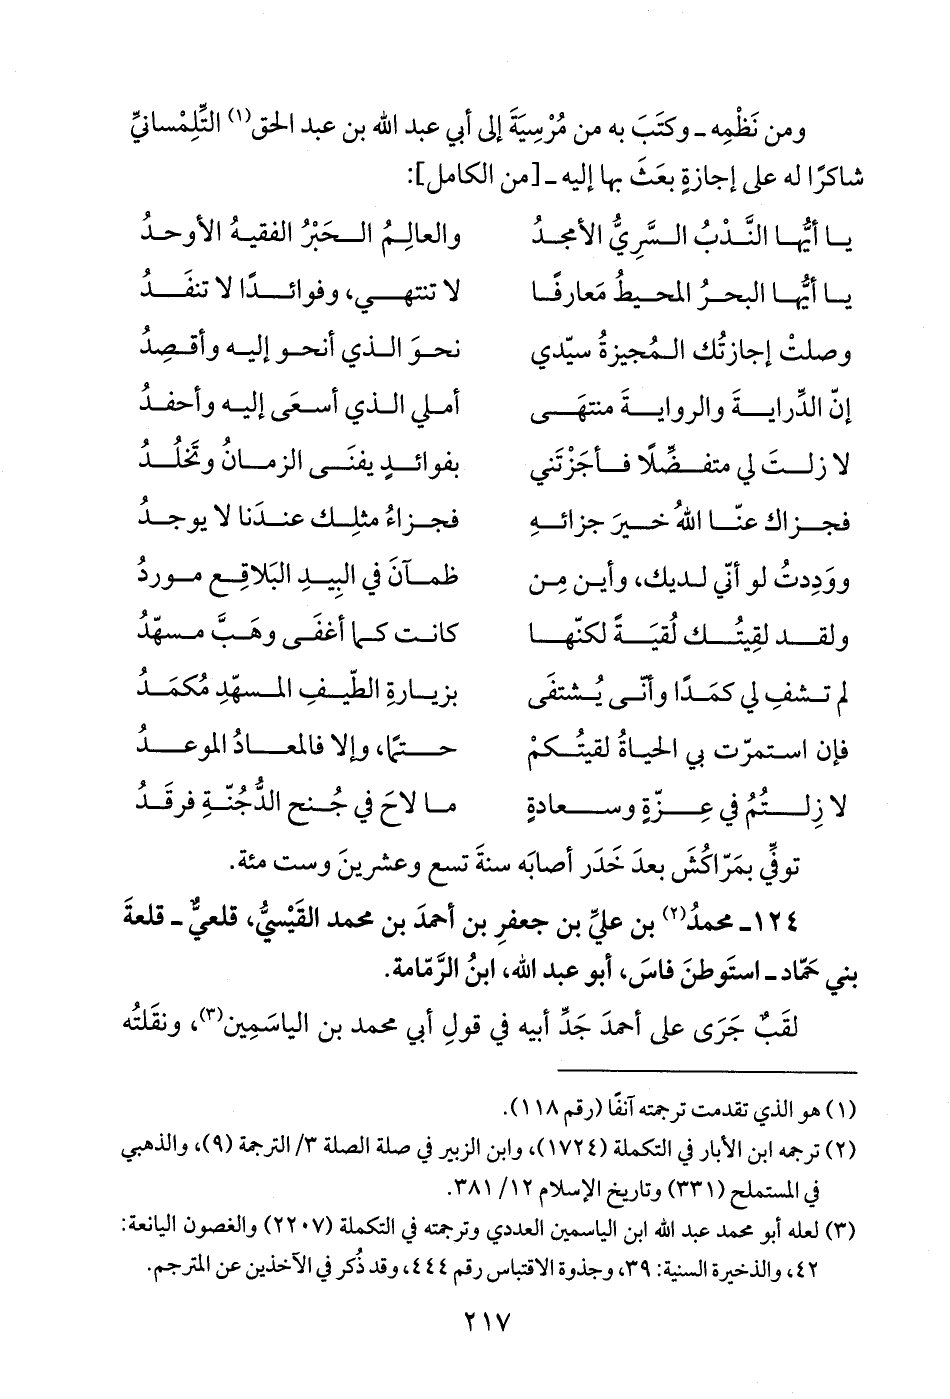 ومن نَظْمِه ـ وكتَبَ به من مُرْسِيَةَ إلى أبي عبد الله بن عبد الحق(١) التِّلِمْسانيِّ
شاكرًا له على إجازةٍ بعَثَ بها إليه ـ [من الكامل]:
يا أيُّها النَّدْبُ السَّرِيُّ الأمجدُ والعالِمُ الحَبْرُ الفقيهُ الأوحدُ
يا أيُّها البحرُ المحيطُ مَعارفًا لا تنتهي، وفوائدًا لا تنفَدُ
وصلتْ إجازتُك المُجيزةُ سيّدي نحوَ الذي أنحو إليه وأقصِدُ
إنّ الدِّرايةَ والروايةَ منتهَى أملي الذي أسعَى إليه وأحفدُ
لا زلتَ لي متفضِّلًا فأجَزْتَني بفوائدٍ يفنَى الزمانُ وتَخلُدُ
فجزاك عنّا اللهُ خيرَ جزائهِ فجزاءُ مثلِك عندَنا لا يوجدُ
ووَدِدتُ لو أنّي لديك، وأين مِن ظمآنَ في البِيدِ البَلاقِعِ موردُ
ولقد لقِيتُك لُقيَةً لكنّها كانت كما أغفَى وهَبَّ مسهّدُ
لم تشفِ لي كمَدًا وأنّى يُشتفَى بزيارةِ الطّيفِ المسهّدِ مُكمَدُ
فإن استمرّت بي الحياةُ لقيتُكمْ حتمًا، وإلا فالمعادُ الموعدُ
لا زِلتُمُ في عِزّةٍ وسعادةٍ ما لاحَ في جُنحِ الدُّجُنّةِ فرقَدُ
توفِّي بمَرّاكُشَ بعدَ خَدَر أصابَه سنةَ تسع وعشرينَ وست مئة.
١٢٤ـ محمدُ(٢) بن عليِّ بن جعفرِ بن أحمدَ بن محمد القَيْسيُّ، قلعيٌّ ـ قلعةَ
بني حَمّاد ـ استَوطنَ فاسَ، أبو عبد الله، ابنُ الرَّمّامة.
لقبٌ جَرَى على أحمدَ جَدِّ أبيه في قولِ أبي محمد بن الياسَمِين(٣)، ونقَلتُه
(١) هو الذي تقدمت ترجمته آنفًا (رقم ١١٨).
(٢) ترجمه ابن الأبار في التكملة (١٧٢٤)، وابن الزبير في صلة الصلة ٣/ الترجمة (٩)، والذهبي
في المستملح (٣٣١) وتاريخ الإسلام ١٢/ ٣٨١.
(٣) لعله أبو محمد عبد الله ابن الياسمين العددي وترجمته في التكملة (٢٢٠٧) والغصون اليانعة:
٤٢، والذخيرة السنية: ٣٩، وجذوة الاقتباس رقم ٤٤٤، وقد ذُكر في الآخذين عن المترجم.
٢١٧